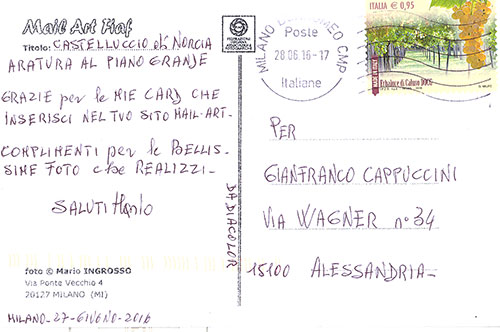 Mail Art Fiaf
Titolo: CASTELLUCCIO di NORCIA
ARATURA AL PIANO GRANDE
GRAZIE per le MIE CARD CHE
INSERISCI NEL TUO SITO MAIL-ART-
COMPLIMENTI per le BELLIS-
SIME FOTO che REALIZZI-
SALUTI Mario
foto © Mario INGROSSO
Via Ponte Vecchio 4
20127 MILANO (MI)
MILANO-27-GIUGNO-2016
DADIACOLOR
MILANO CMP
Poste
28 06 16-17
Italiane
ITALIA € 0,95
Erbaluce di Caluso DOCG
PER
GIANFRANCO CAPPUCCINI
VIA WAGNER n° 34
15100 ALESSANDRIA-